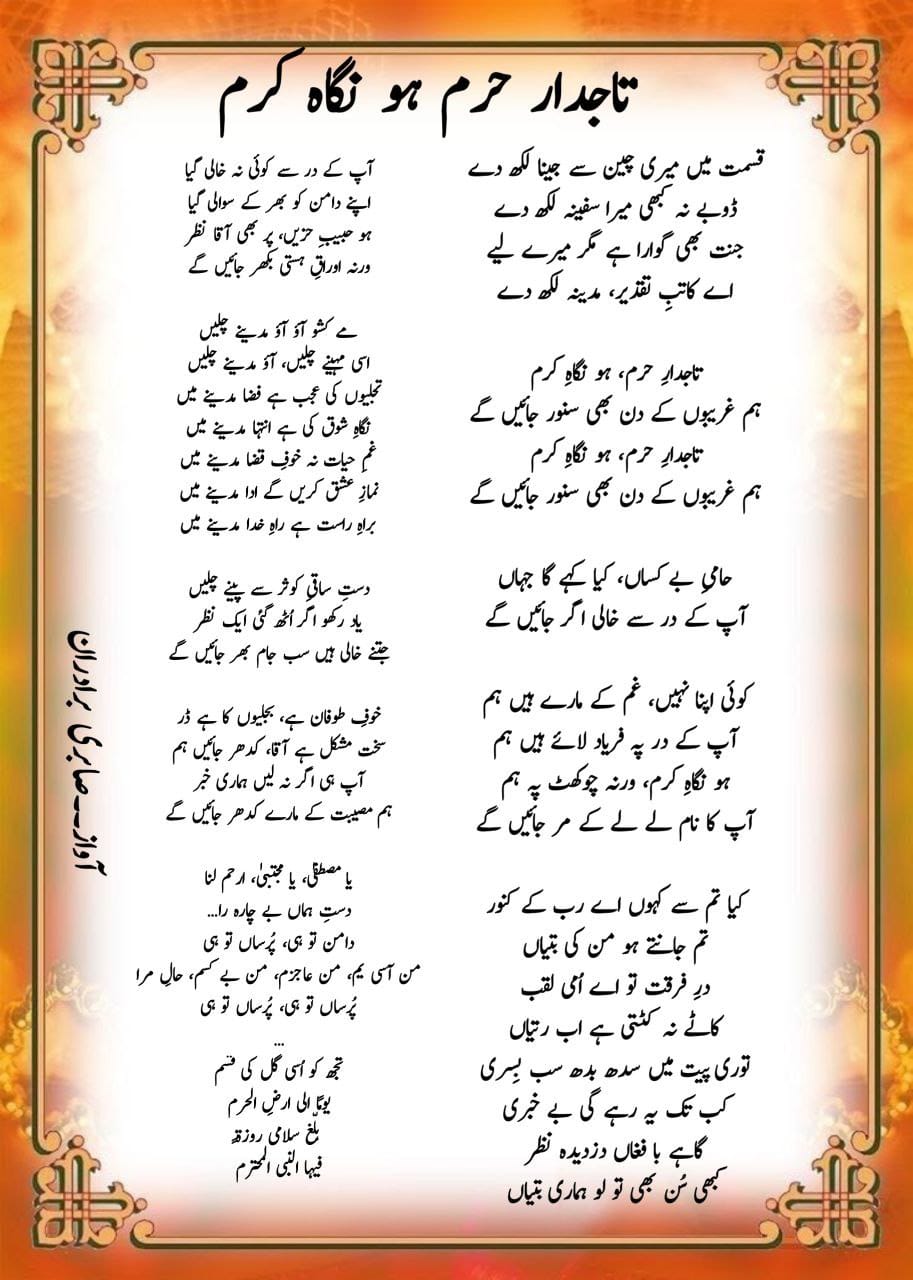 تاجدار حرم ہو نگاہ کرم
قسمت میں میری چین سے جینا لکھ دے
ڈوبے نہ کبھی میرا سفینہ لکھ دے
جنت بھی گوارا ہے مگر میرے لیے
اے کاتبِ تقدیر، مدینہ لکھ دے
تاجدارِ حرم، ہو نگاہِ کرم
ہم غریبوں کے دن بھی سنور جائیں گے
تاجدارِ حرم، ہو نگاہِ کرم
ہم غریبوں کے دن بھی سنور جائیں گے
حامیِ بے کساں، کیا کہے گا جہاں
آپ کے در سے خالی اگر جائیں گے
کوئی اپنا نہیں، غم کے مارے ہیں ہم
آپ کے در پہ فریاد لائے ہیں ہم
ہو نگاہِ کرم، ورنہ چوکھٹ پہ ہم
آپ کا نام لے لے کے مر جائیں گے
کیا تم سے کہوں اے رب کے کنور
تم جانتے ہو من کی بتیاں
درِ فرقت تو اے اُمی لقب
کاٹے نہ کٹتی ہے اب رتیاں
توری پیت میں سدھ بدھ سب بِسری
کب تک یہ رہے گی بے خبری
گاہے بافغاں دزدیدہ نظر
کبھی سُن بھی تو لو ہماری بتیاں
آپ کے در سے کوئی نہ خالی گیا
اپنے دامن کو بھر کے سوالی گیا
ہو حبیبِ حزیں، پر بھی آقا نظر
ورنہ اوراقِ ہستی بکھر جائیں گے
مے کشو آؤ آؤ مدینے چلیں
اسی مہینے چلیں، آؤ مدینے چلیں
تجلیوں کی عجب ہے فضا مدینے میں
نگاہِ شوق کی ہے انتہا مدینے میں
غمِ حیات نہ خوفِ قضا مدینے میں
نمازِ عشق کریں گے ادا مدینے میں
براہِ راست ہے راہِ خدا مدینے میں
دستِ ساقیِ کوثر سے پینے چلیں
یاد رکھو اگر اُٹھ گئی ایک نظر
جتنے خالی ہیں سب جام بھر جائیں گے
خوفِ طوفان ہے، بجلیوں کا ہے ڈر
سخت مشکل ہے آقا، کدھر جائیں ہم
آپ ہی اگر نہ لیں ہماری خبر
ہم مصیبت کے مارے کدھر جائیں گے
یا مصطفیٰ، یا مجتبیٰ، ارحم لنا
دستِ ہماں بے چارہ را...
دامن تو ہی، پُرساں تو ہی
من آسی یم، من عاجزم، من بے کسم، حالِ مرا
پُرساں تو ہی، پُرساں تو ہی
...
تجھ کو اُسی گل کی قسم
یوماً الی ارضِ الحرم
بلّغ سلامی روزۃ
فیہا النبی المحترم
آواز۔۔صابری برادران